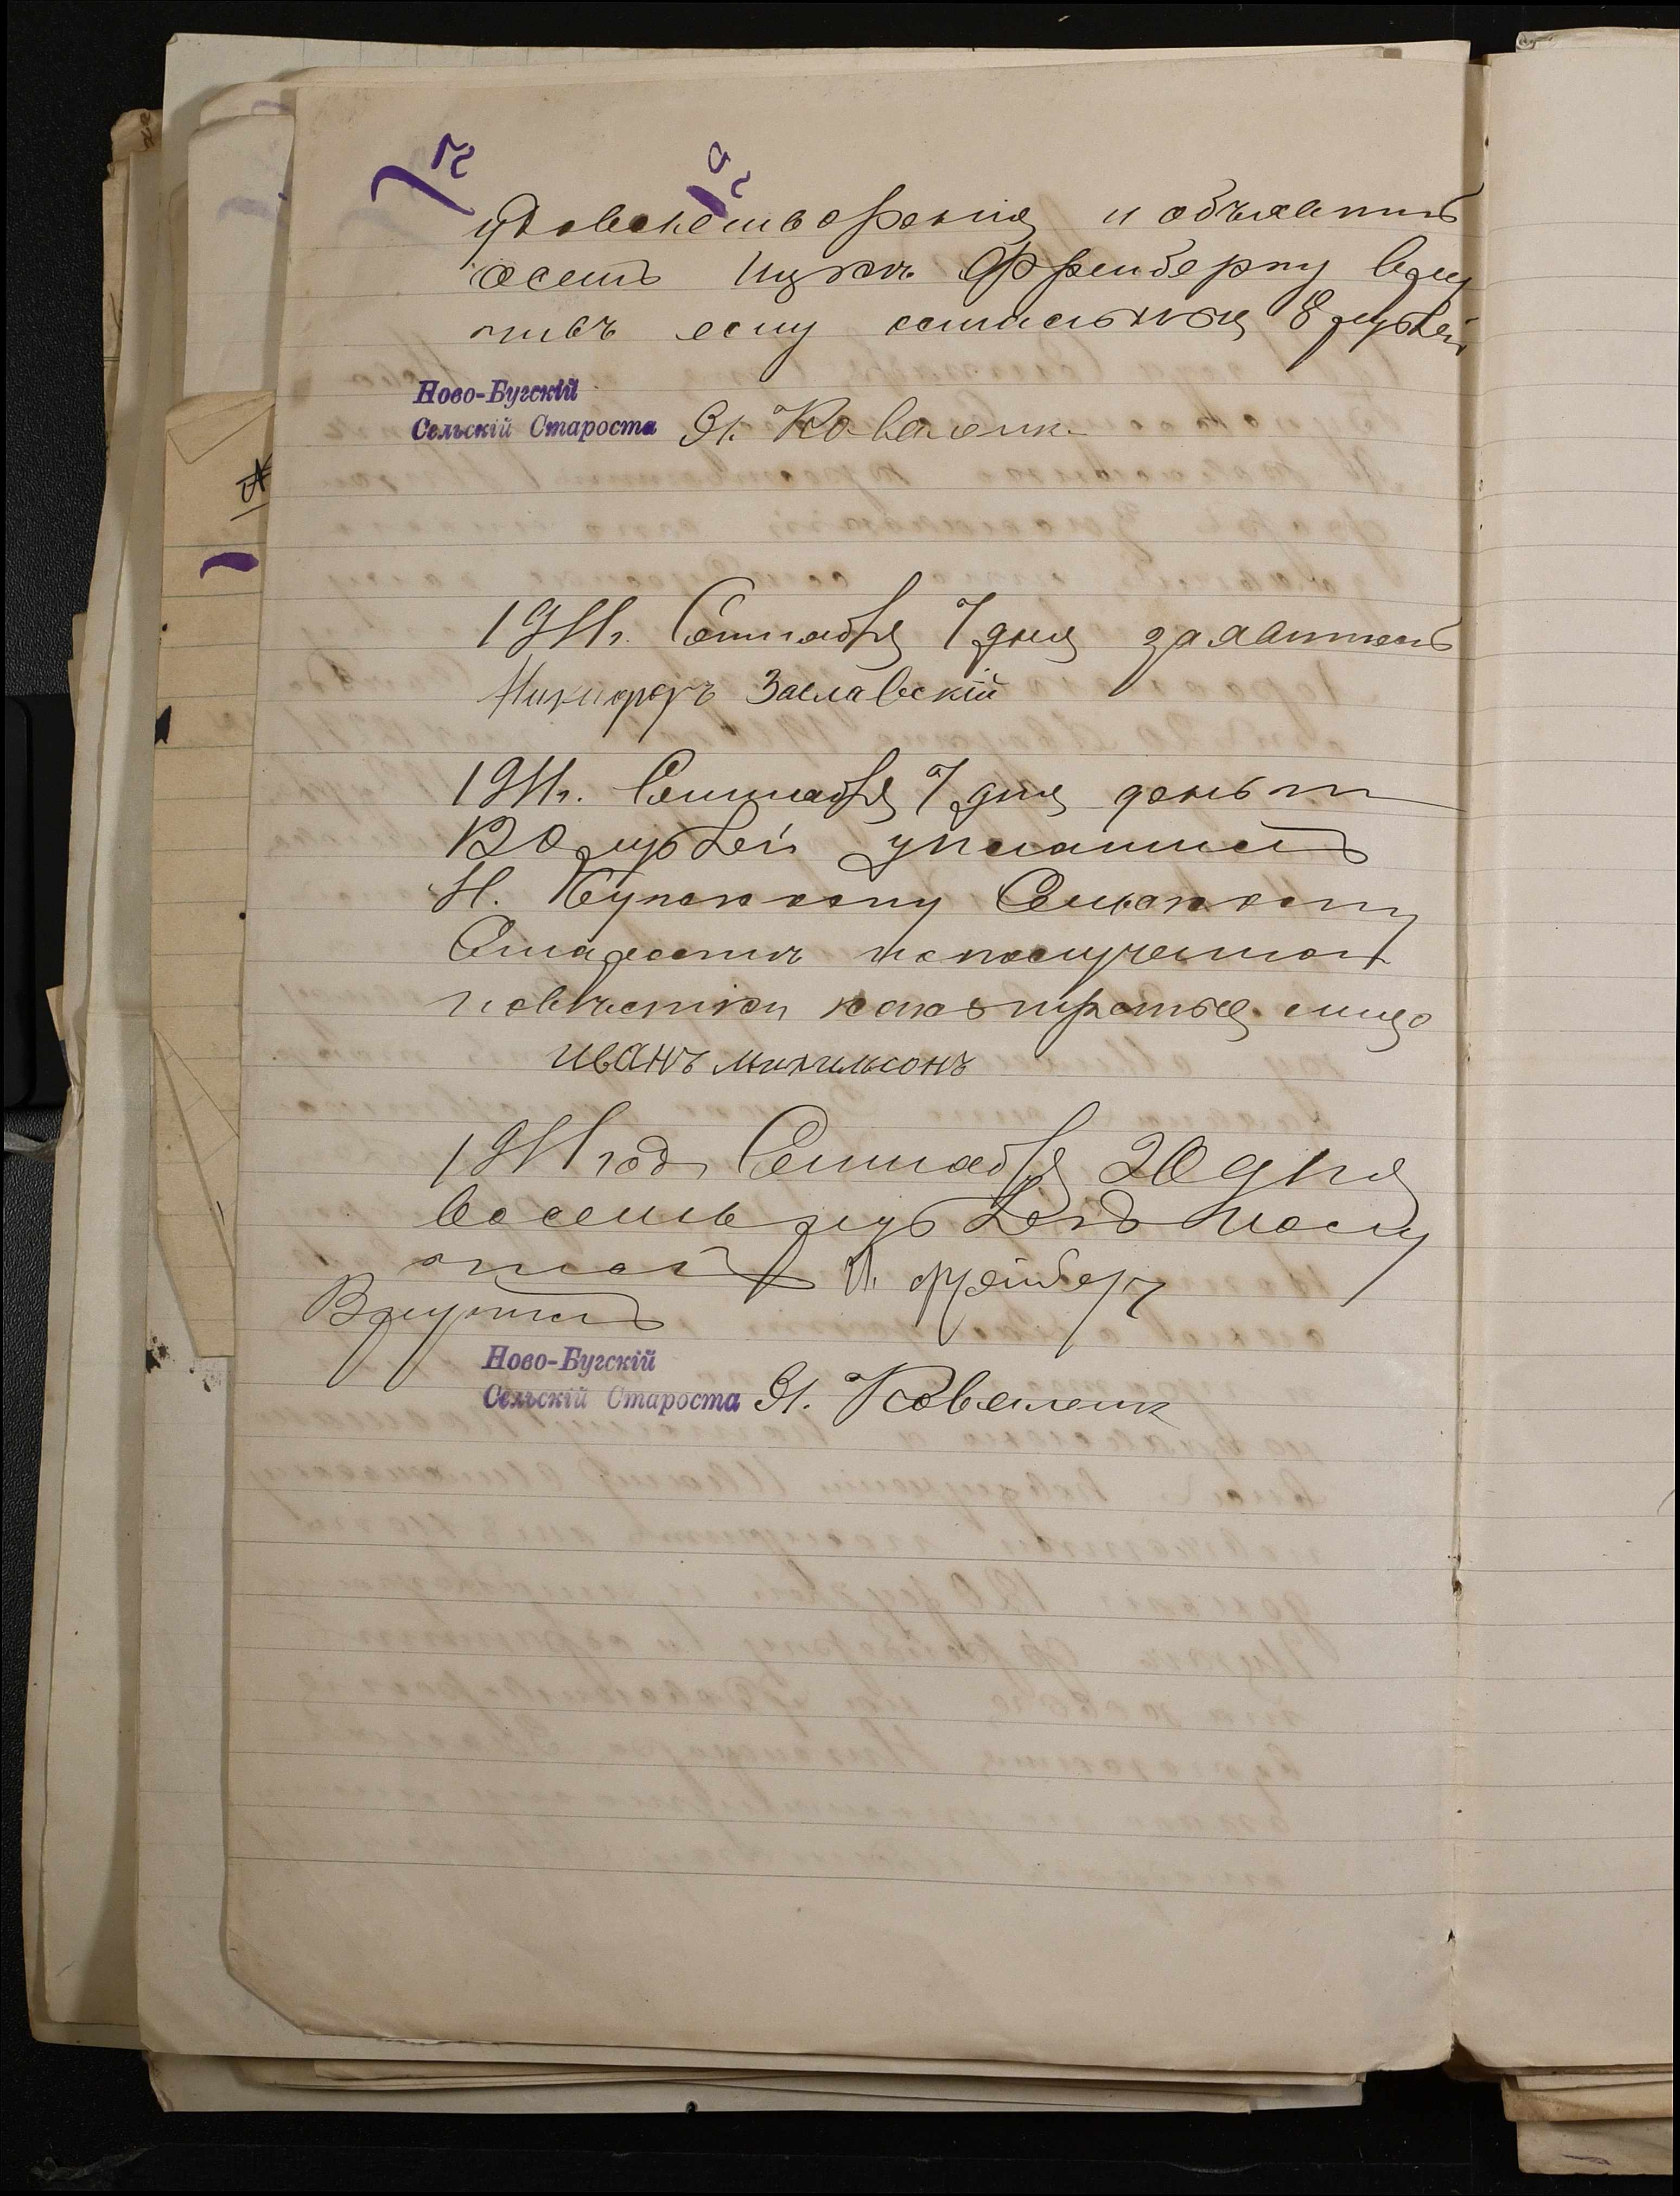 удовлетворенія и объявить
Ицкѣ Фрейбергу вру
чивъ ему остальныя 8 рублей
Ново-Бугскій
Сельскій Староста Я. Коваленк
1911г. Сентября 7 дня заявитель
Никифоръ Заславскій
1911г. Сентября 7 дня деньги
120 рублей уплатилъ
Н. Бугскому Сельскому
Старостѣ по полученной
повѣстки какъ третье лицо
иванъ михильсонъ
1911 года Сентября 20 дня
восемь рублей получ
И. Фрейберг
Вручилъ
Ново-Бугскій
Сельскій Староста Я. Коваленк